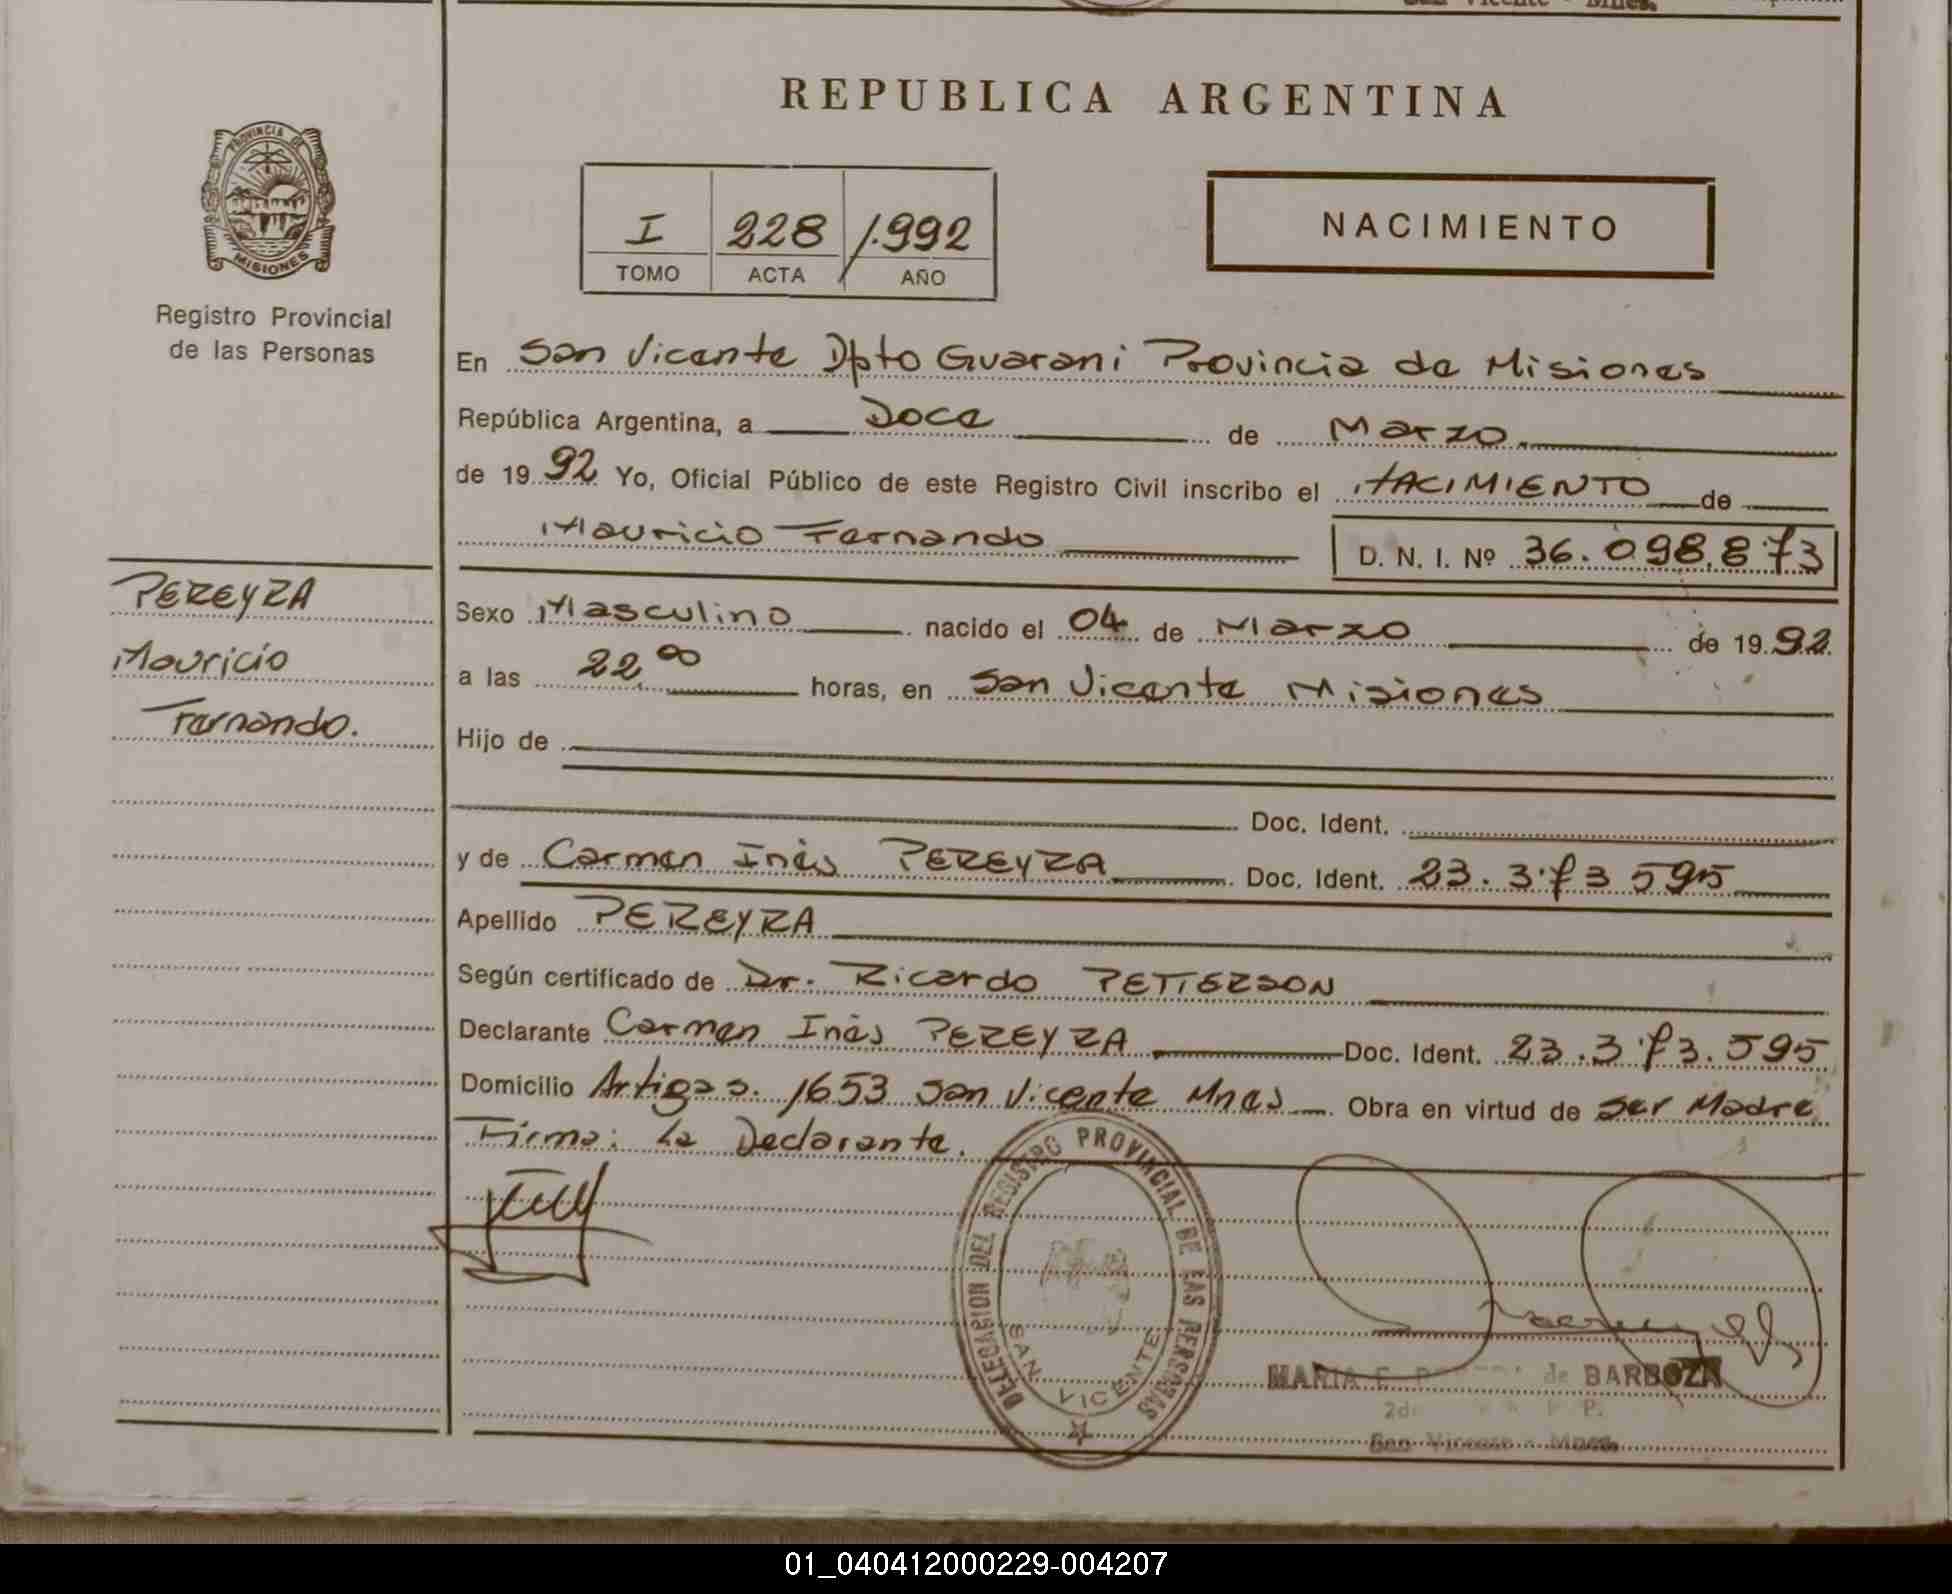 San Vicente - Mnes.
REPUBLICA ARGENTINA
PROVINCIA DE MISIONES
I 228 1.992
TOMO ACTA AÑO
NACIMIENTO
Registro Provincial
de las Personas
En San Vicente Dpto Guarani Provincia de Misiones
República Argentina, a Doce de Marzo
de 1992 Yo, Oficial Público de este Registro Civil inscribo el NACIMIENTO de
Mauricio Fernando D. N. I. Nº 36.098.873
PEREYRA
Mauricio
Fernando.
Sexo Masculino nacido el 04 de Marzo de 1992
a las 22,00 horas, en San Vicente Misiones
Hijo de
Doc. Ident.
y de Carmen Inés PEREYRA Doc. Ident. 23.373595
Apellido PEREYRA
Según certificado de Dr. Ricardo PETTERSON
Declarante Carmen Inés PEREYRA Doc. Ident. 23.373.595
Domicilio Artigas. 1653 San Vicente Mnes Obra en virtud de Ser Madre
Firma: La Declarante.
DELEGACION DEL REGISTRO PROVINCIAL DE LAS PERSONAS
SAN VICENTE
MARIA E. de BARBOZA
San Vicente - Mnes.
01_040412000229-004207